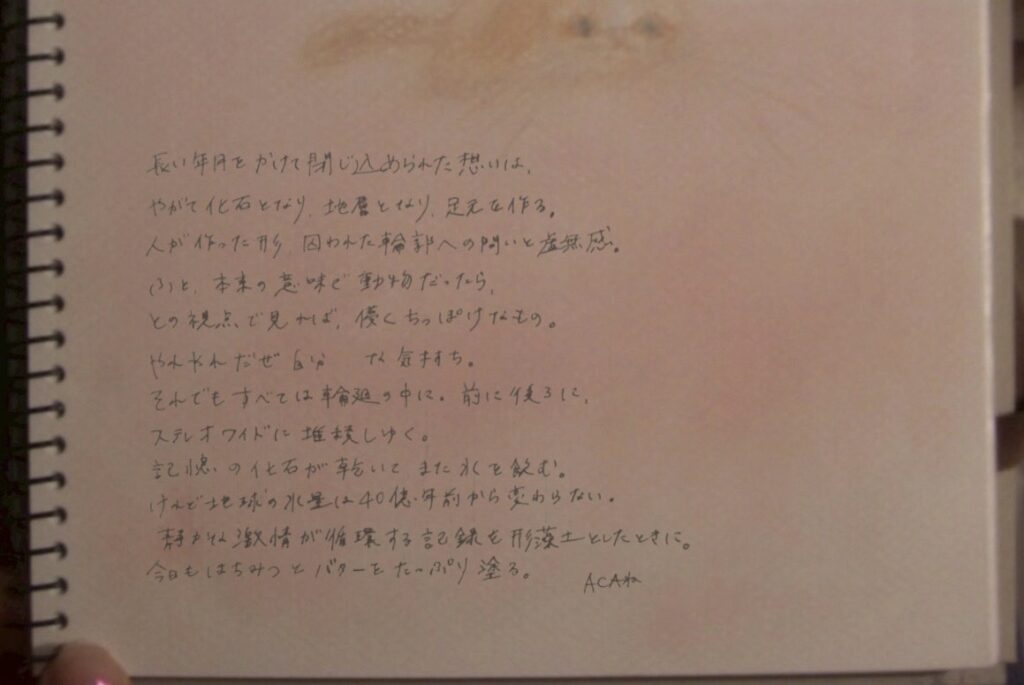 長い年月をかけて閉じ込められた想いは、
やがて化石となり、地層となり、足元を作る。
人が作った形、囚われた輪郭への問いと虚無感。
ふと、本来の意味で動物だったら、
との視点で見れば、儚くちっぽけなもの。
やれやれだぜ自分 な気持ち。
それでもすべては輪廻の中に。前に後ろに、
ステレオワイドに堆積しゆく。
記憶の化石が乾いて また水を飲む。
けれど地球の水量は40億年前から変わらない。
静かな激情が循環する記録を形藻土としたときに。
今日もはちみつとバターをたっぷり塗る。
ACAね